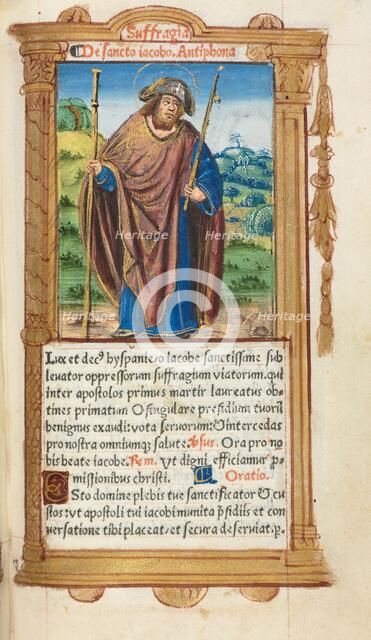 Suffragia
De sancto iacobo. Antiphona
Heritage Heritage
Heritage Heritage
Lux et decꝰ hyspanie/o Iacobe sanctissime sub
leuator oppressorum suffragium viatorum. qui
inter apostolos primus martir laureatus ob-
tines primatum O singulare presidium tuorū
benignus exaudi: vota seruorum: Et intercedas
pro nostra omniumqꝫ salute. Ꟊsus. Ora pro no
bis beate iacobe. Rem. Vt digni efficiamur ꝓ-
missionibus christi. Oratio.
ESto domine plebis tue sanctificator Et cu-
stos: vt apostoli tui iacobi munita p̄sidiis et con
uersatione tibi placeat/et secura deseruiat. p.
Heritage Heritage